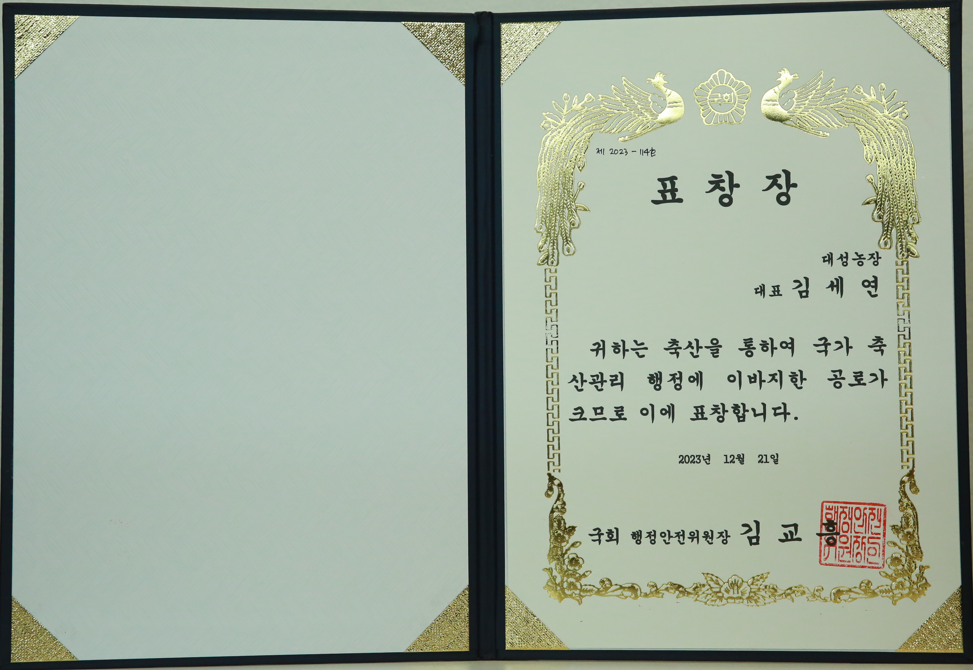 국회
제 2023 - 114호
표 창 장
대성농장
대표 김 세 연
귀하는 축산을 통하여 국가 축
산관리 행정에 이바지한 공로가
크므로 이에 표창합니다.
2023년 12월 21일
국회 행정안전위원장 김 교 흥